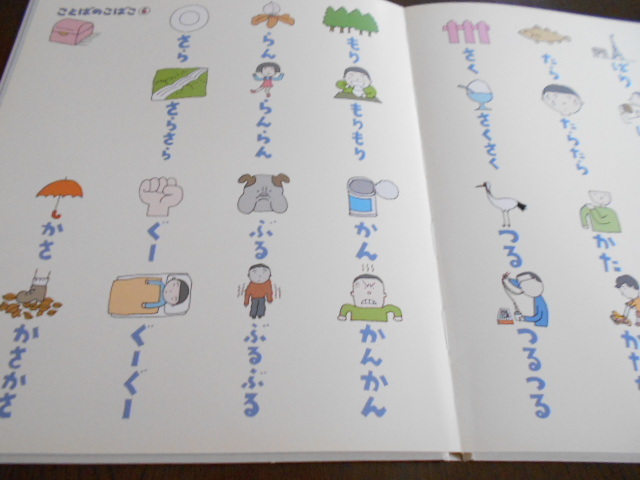 ことばのこばこ
もり
もりもり
らん
らんらん
さら
さらさら
かん
かんかん
ぶる
ぶるぶる
ぐー
ぐーぐー
かさ
かさかさ
ぱり
たら
たらたら
さく
さくさく
かた
つる
つるつる